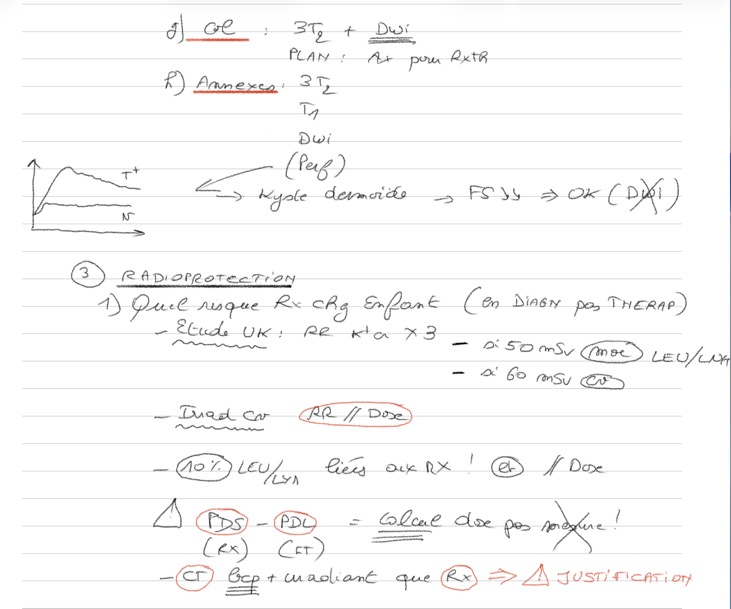 g) Col : 3T2 + Dwi
PLAN : Ax pour RxTR
h) Annexes : 3T2
T1
Dwi
(Perf)
T+
N
→ Kyste dermoïde → FS ↓↓ ⇒ OK (Dwi)
③ RADIOPROTECTION
1) Quel risque Rx chg Enfant (en DIAGN pas THERAP)
- Etude UK : RR K' a x 3
- si 50 mSv (moe) LEU/LYM
- si 60 mSv (cv)
- Irrad cv (RR // Dose)
- 10% LEU/LYM liées aux RX ! et // Dose
⚠ PDS - PDL = calcul dose pas mesure !
(RX) (CT)
- CT bcp + irradiant que Rx ⇒ ⚠ JUSTIFICATION